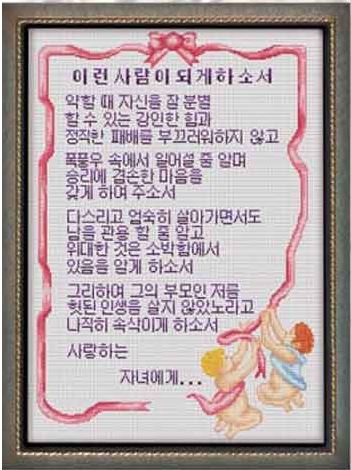 이런사람이되게하소서
약할 때 자신을 잘 분별
할 수 있는 강인한 힘과
정직한 패배를 부끄러워하지 않고
폭풍우 속에서 일어설 줄 알며
승리에 겸손한 마음을
갖게 하여 주소서
다스리고 엄숙히 살아가면서도
남을 관용 할 줄 알고
위대한 것은 소박함에서
있음을 알게 하소서
그리하여 그의 부모인 저를
헛된 인생을 살지 않았노라고
나직히 속삭이게 하소서
사랑하는
자녀에게...